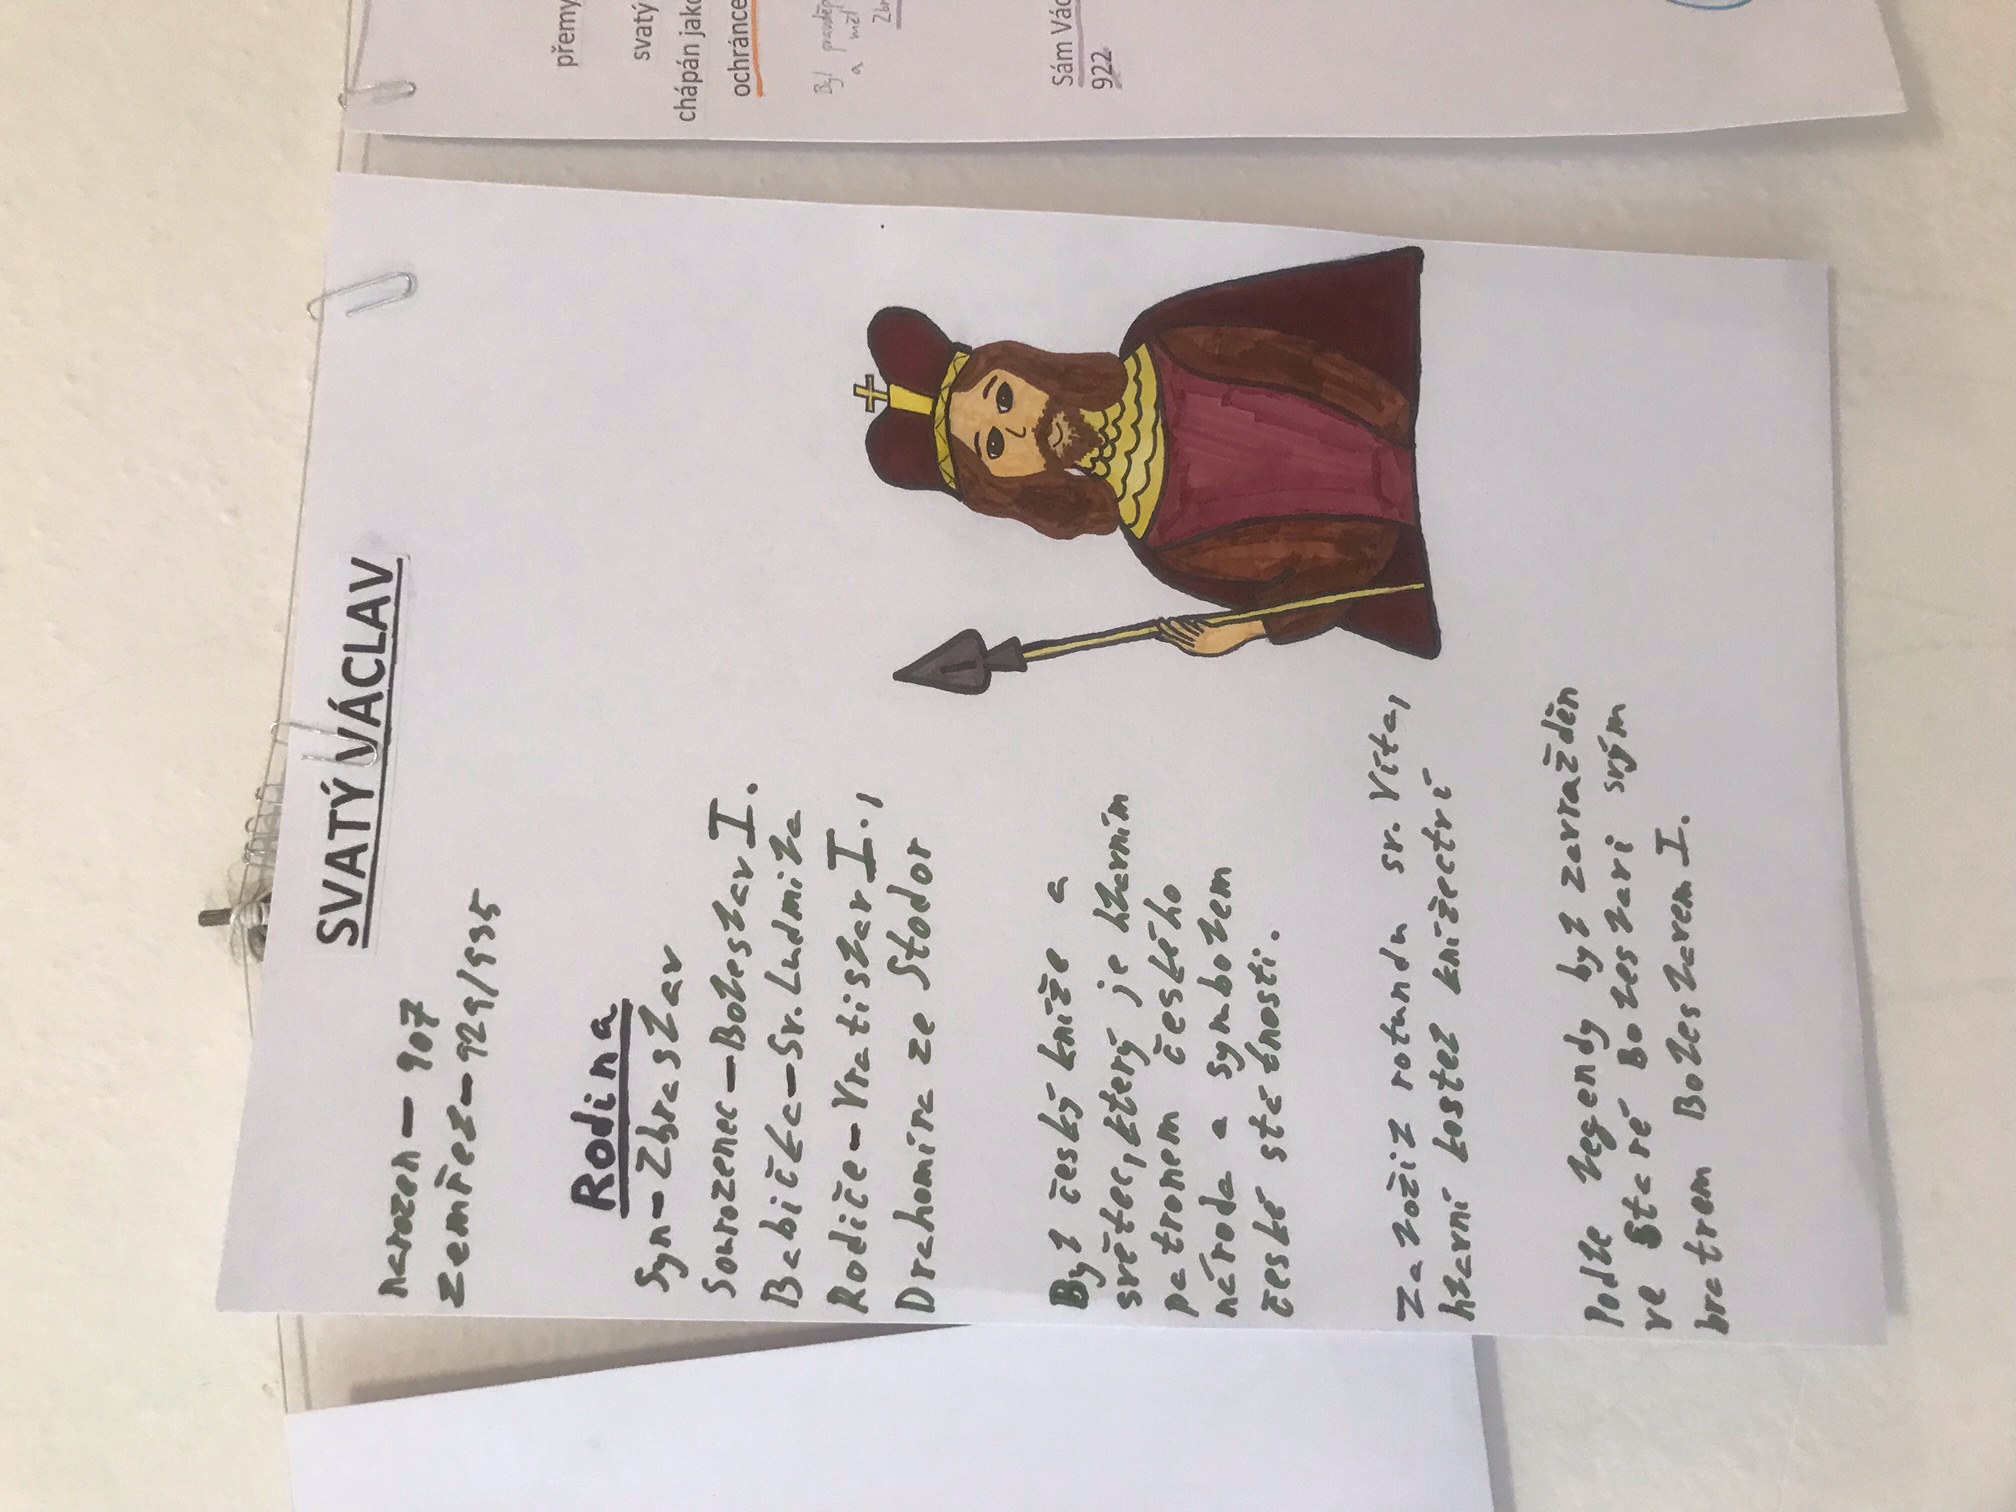 SVATÝ VÁCLAV
narozen - 907
zemřel - 929/935
Rodina
Syn - Zbraslav
Sourozenec - Boleslav I.
Babička - Sv. Ludmila
Rodiče - Vratislav I.,
Drahomíra ze Stodor
Byl český kníže a
světec, který je hlavním
patronem českého
národa a symbolem
české státnosti.
Založil rotundu sv. Víta,
hlavní kostel knížectví
Podle legendy byl zavražděn
ve Staré Boleslavi svým
bratrem Boleslavem I.
přemy
svatý
chápán jako
ochránce
Byl
a měl
Sám Vác
922